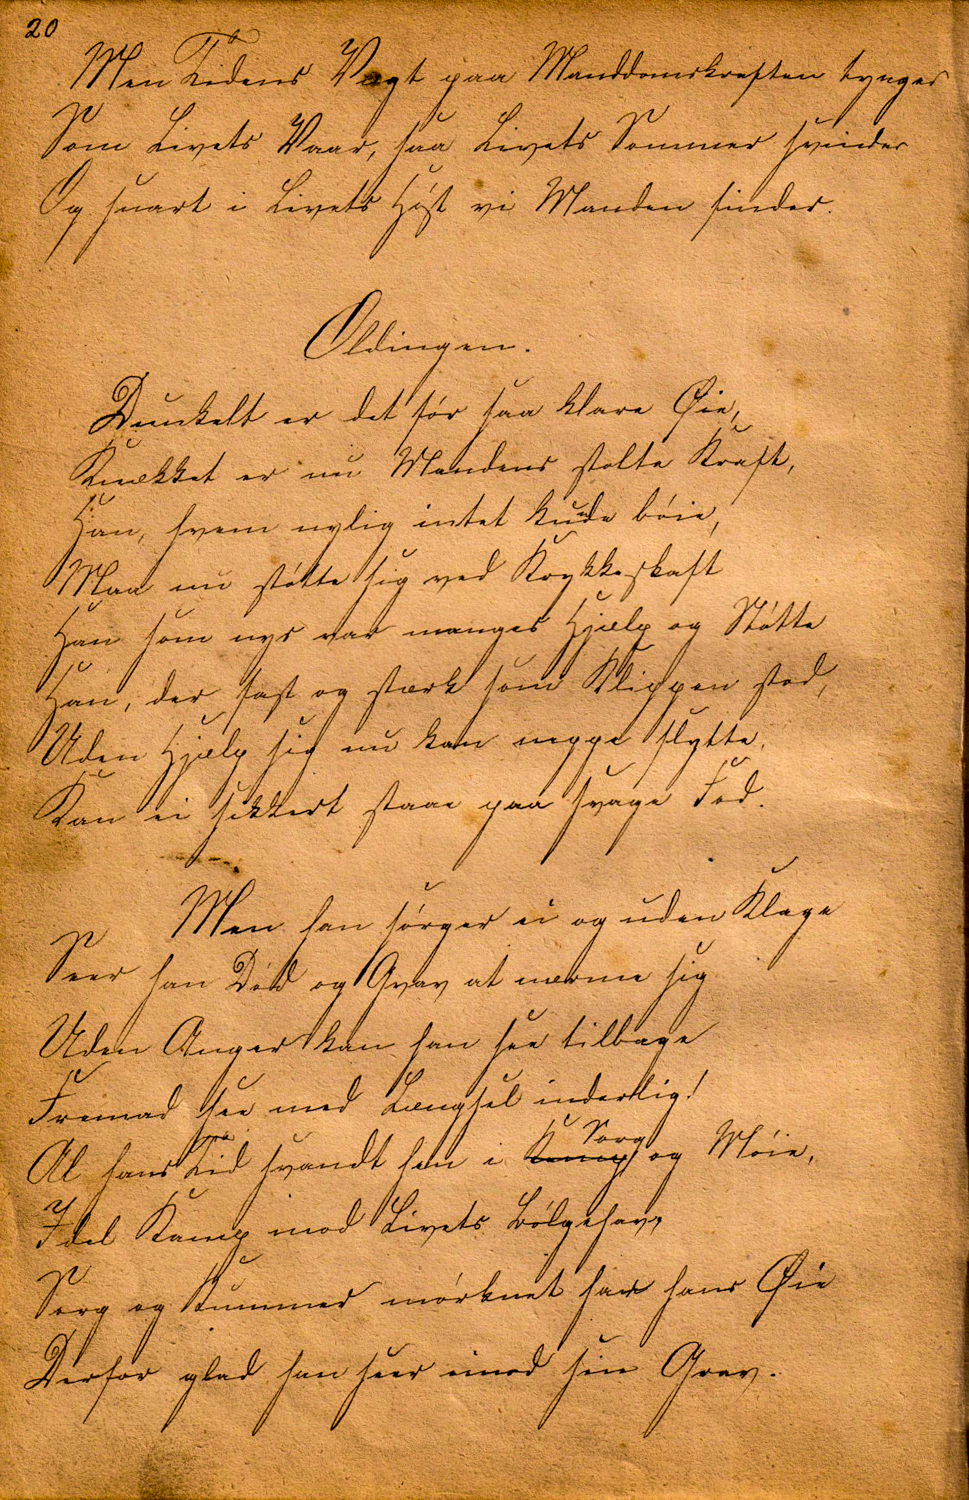 20
Men Tidens Vægt paa Manddomskraften tynger
Som Livets Vaar, saa Livets Sommer svinder
Og snart i Livets Høst vi Manden finder.
Oldingen.
Dunkelt er det før saa klare Øie,
Knækket er nu Mandens stolte Kraft,
Han, hvem nylig intet kunde bøie,
Maa nu støtte sig ved Krykkeskaft
Han som nys var manges Hjælp og Støtte
Han, der fast og stærk som Klippen stod,
Uden Hjælp sig nu kan neppe flytte,
Kan ei sikkert staae paa svage Fod.
Men han sørger ei og uden Klage
Seer han Død og Grav at nærme sig
Uden Anger kan han see tilbage
Fremad see med Længsel inderlig!
Al hans Tid svandt hen i Kamp Sorg og Møie,
Idel Kamp mod Livets Bølgehav,
Sorg og Kummer mørknet har hans Øie
Derfor glad han seer imod sin Grav.